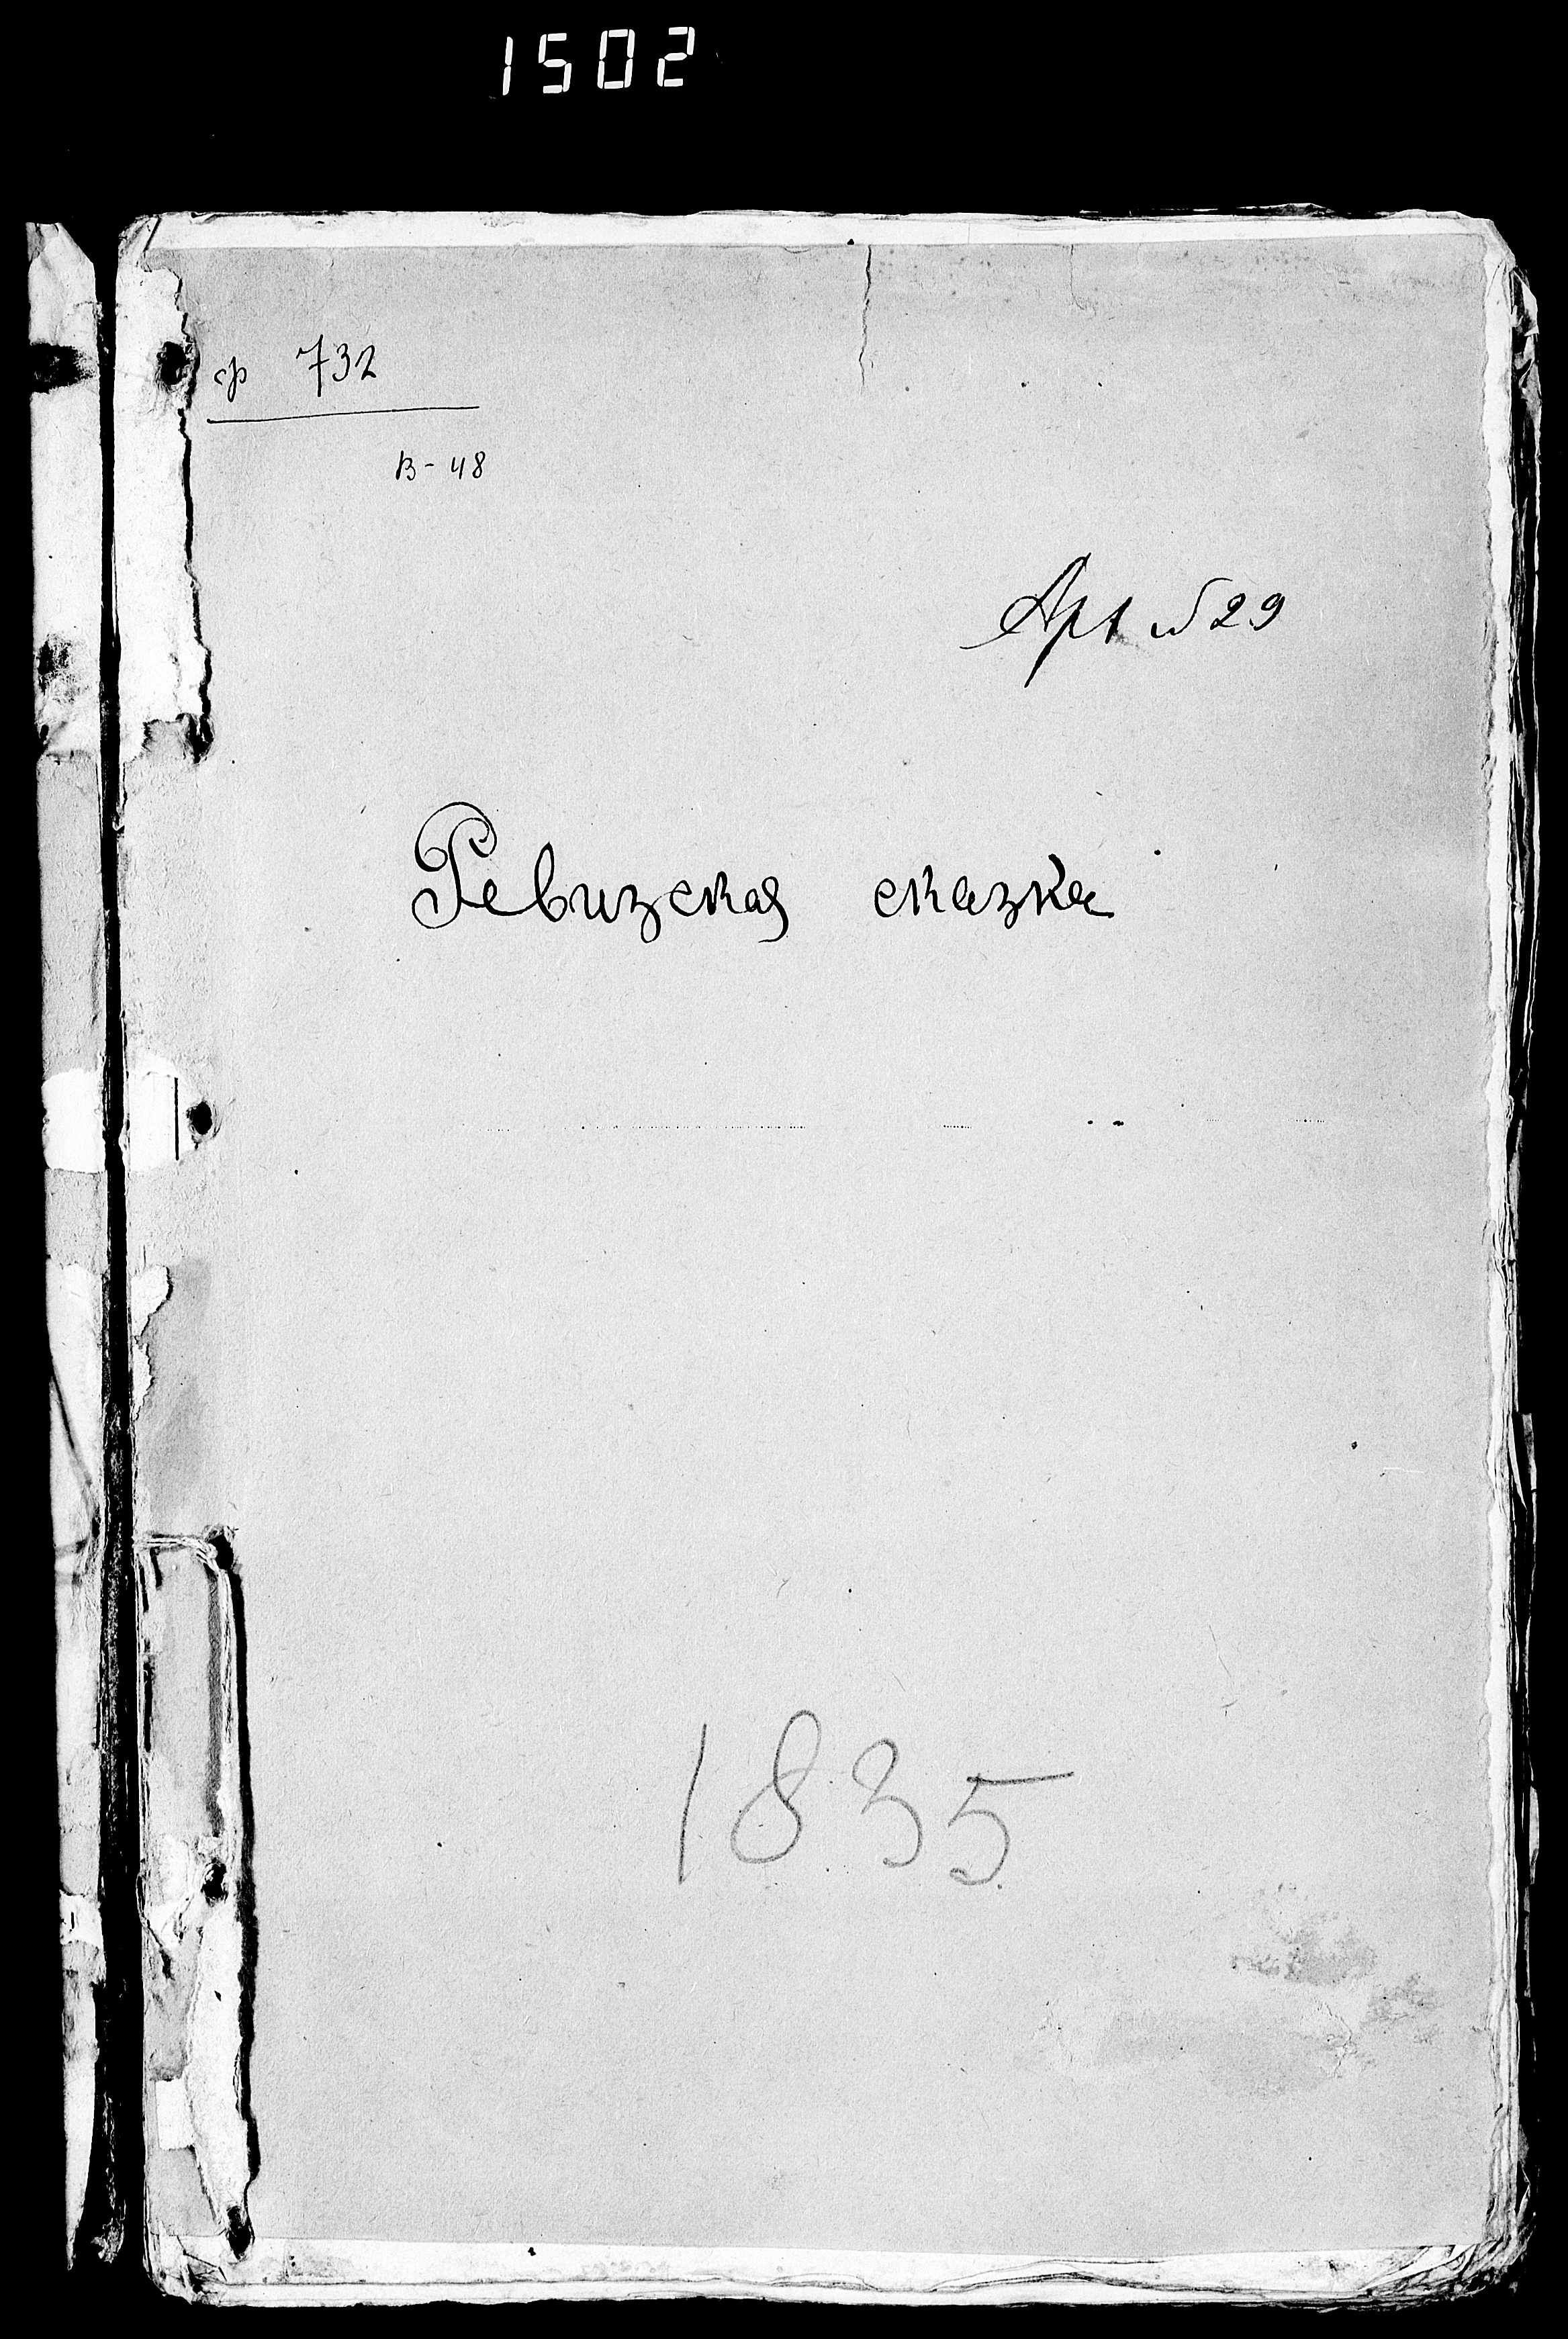 1502
ф 732
В-48
Арх №29
Ревизская сказка
1835